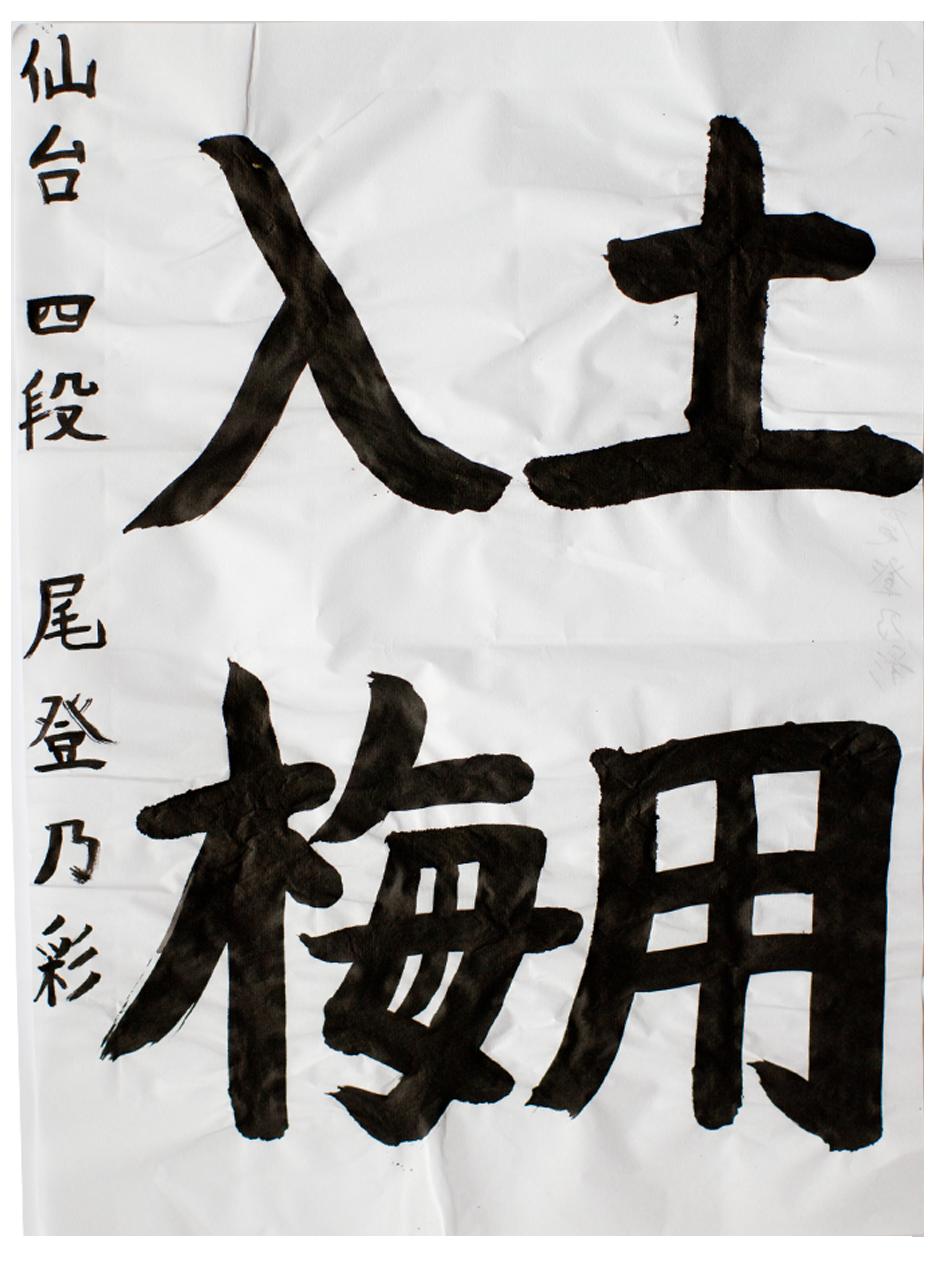 土用
入梅
仙台 四段 尾登乃彩